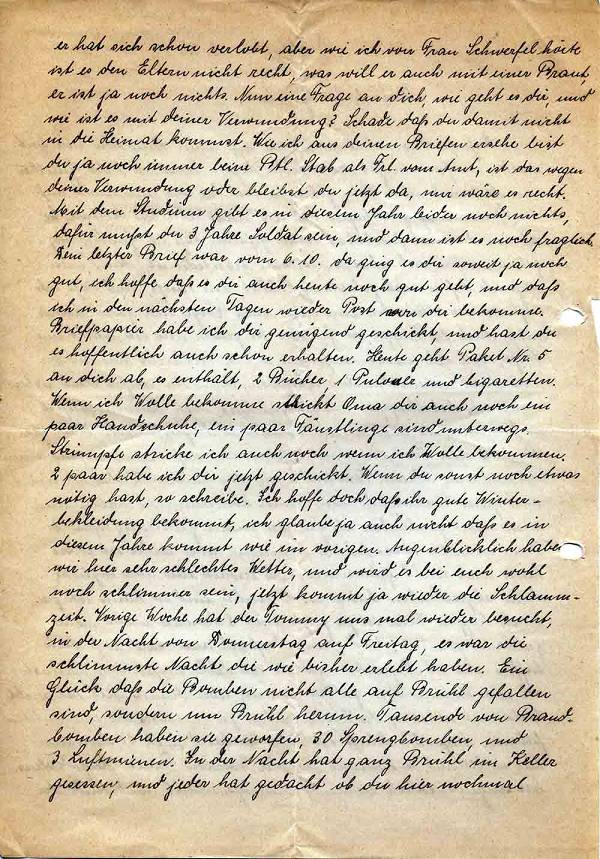 er hat sich schon verlobt, aber wie ich von Frau Schwerfel hörte
ist es den Eltern nicht recht, was will er auch mit einer Braut,
er ist ja noch nichts. Nun eine Frage an dich, wie geht es dir, und
wie ist es mit deiner Verwundung? Schade daß du damit nicht
in die Heimat kommst. Wie ich aus deinen Briefen ersehe bist
du ja noch immer beim Btl. Stab als vom Amt, ist das wegen
deiner Verwundung oder bleibst du jetzt da, mir wäre es recht.
Mit dem Studium gibt es in diesem Jahr leider noch nichts,
dafür mußt du 3 Jahre Soldat sein, und dann ist es noch fraglich.
Dein letzter Brief war vom 6.10. da ging es dir soweit ja noch
gut, ich hoffe daß es dir auch heute noch gut geht, und daß
ich in den nächsten Tagen wieder Post von dir bekomme.
Briefpapier habe ich dir genügend geschickt, und hast du
es hoffentlich auch schon erhalten. Heute geht Paket Nr. 5
an dich ab, es enthält, 2 Bücher, 1 Pulover und Cigaretten.
Wenn ich Wolle bekomme strickt Oma dir auch noch ein
paar Handschuhe, ein paar Fäustlinge sind unterwegs.
Strümpfe stricke ich auch noch wenn ich Wolle bekommen.
2 paar habe ich dir jetzt geschickt. Wenn du sonst noch etwas
nötig hast, so schreibe. Ich hoffe doch daß ihr gute Winter-
bekleidung bekommt, ich glaube ja auch nicht daß es in
diesem Jahre kommt wie im vorigen. Augenblicklich haben
wir hier sehr schlechtes Wetter, und wird es bei euch wohl
noch schlimmer sein, jetzt kommt ja wieder die Schlamm-
zeit. Vorige Woche hat der Tommy uns mal wieder besucht,
in der Nacht von Donnerstag auf Freitag, es war die
schlimmste Nacht die wie bisher erlebt haben. Ein
Glück daß die Bomben nicht alle auf Brühl gefallen
sind, sondern um Brühl herum. Tausende von Brand-
bomben haben sie geworfen, 30 Sprengbomben, und
3 Luftminen. In der Nacht hat ganz Brühl im Keller
gesessen, und jeder hat gedacht ob du hier nochmal